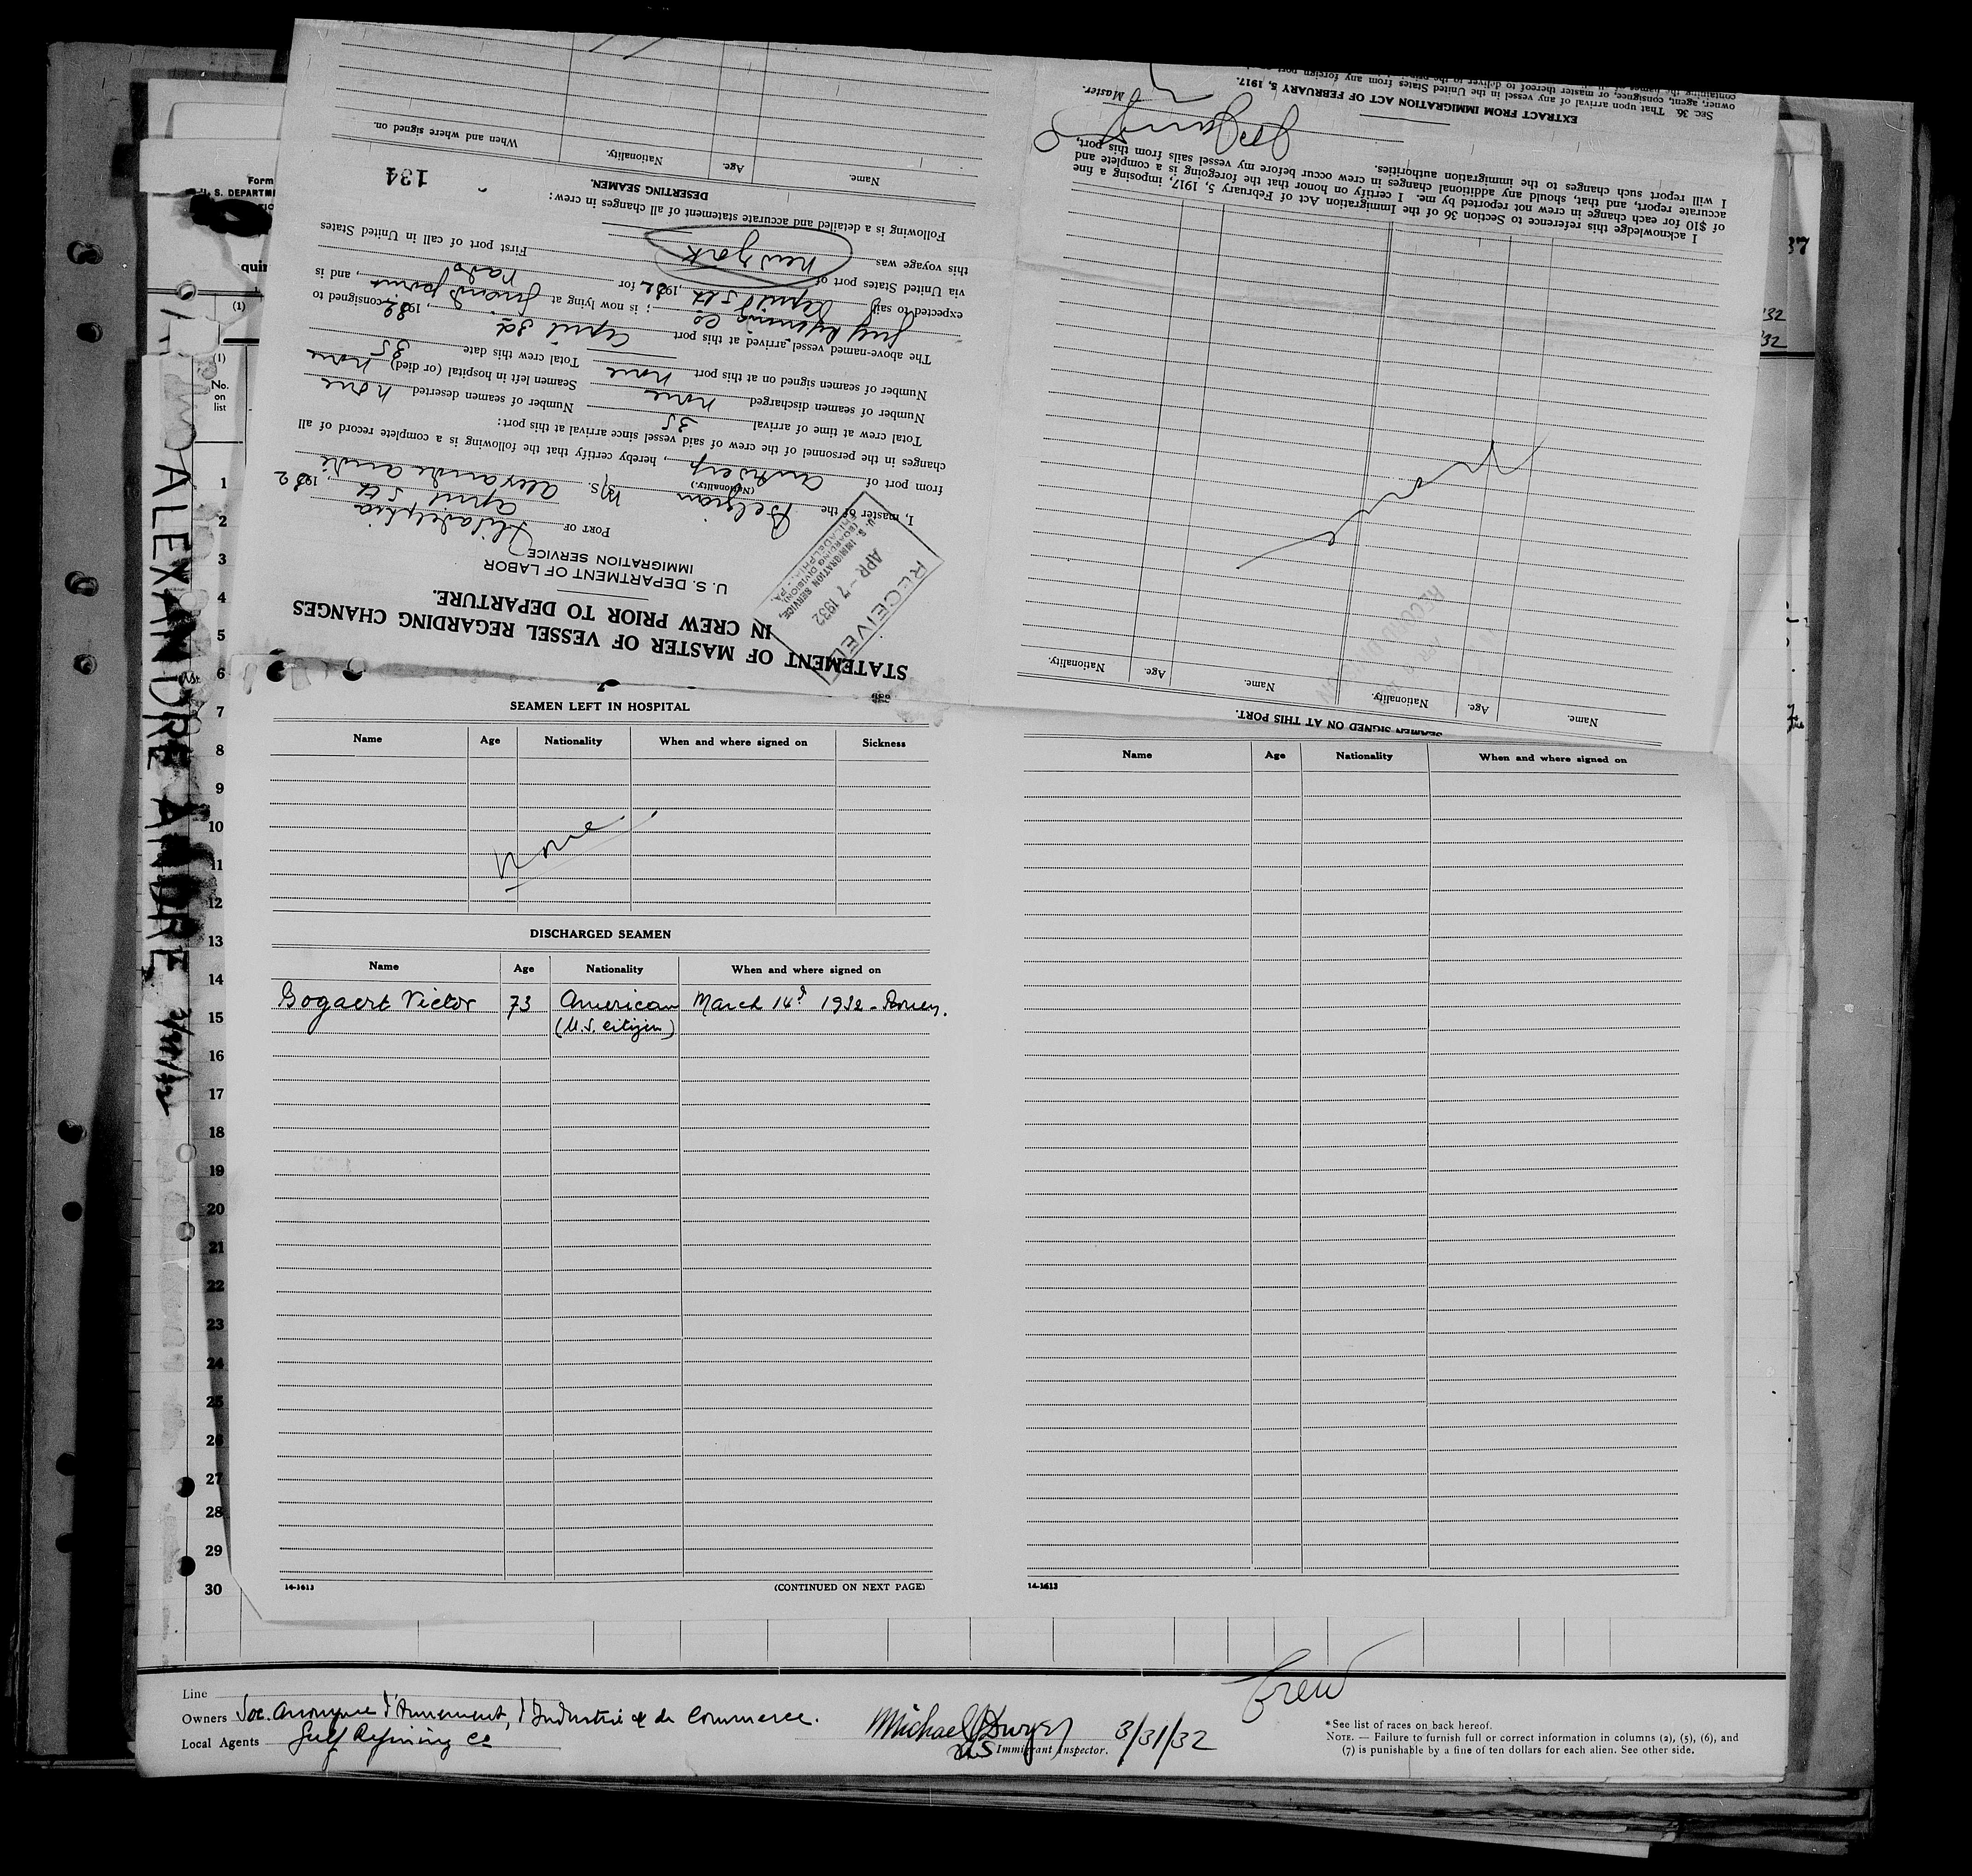 STATEMENT OF MASTER OF VESSEL REGARDING CHANGES
IN CREW PRIOR TO DEPARTURE.
U. S. DEPARTMENT OF LABOR
IMMIGRATION SERVICE
PORT OF Philadelphia
April 5th, 1932
RECEIVED
APR - 7 1932
U. S. IMMIGRATION SERVICE,
(BOARDING DIVISION)
PHILADELPHIA, PA.
I, master of the Belgian M/S. Alexandre André
(Nationality.)
from port of Antwerp, hereby certify that the following is a complete record of all
changes in the personnel of the crew of said vessel since arrival at this port:
Total crew at time of arrival 35
Number of seamen discharged none Number of seamen deserted none
Number of seamen signed on at this port none Seamen left in hospital (or died) none
Total crew this date 35
The above-named vessel arrived at this port April 3d, 1932 consigned to
Gulf Refining Co; is now lying at Girard point, and is
expected to sail April 5th, 1932 for
via United States port of New York First port of call in United States
this voyage was
Following is a detailed and accurate statement of all changes in crew:
DESERTING SEAMEN.
134
Name. Age. Nationality. When and where signed on.
SEAMEN SIGNED ON AT THIS PORT.
Name. Age. Nationality. Name. Age. Nationality.
None
I acknowledge this reference to Section 36 of the Immigration Act of February 5, 1917, imposing a fine
of $10 for each change in crew not reported by me. I certify on honor that the foregoing is a complete and
accurate report, and that, should any additional changes in crew occur before my vessel sails from this port,
I will report such changes to the immigration authorities.
Master.
EXTRACT FROM IMMIGRATION ACT OF FEBRUARY 5, 1917.
SEC. 36. That upon arrival of any vessel in the United States from any foreign port
owner, agent, consignee, or master thereof to deliver to the
containing the names of
Form
U. S. DEPARTM
quir
(1)
(1)
No.
on
list
37
32
32
ALEXANDRE ANDRE
1
2
3
4
5
6
7
8
9
10
11
12
13
14
15
16
17
18
19
20
21
22
23
24
25
26
27
28
29
30
SEAMEN LEFT IN HOSPITAL
Name Age Nationality When and where signed on Sickness
None
DISCHARGED SEAMEN
Name Age Nationality When and where signed on
Bogaert Victor 73 American March 14th 1932 - Rouen.
(U.S. citizen)
14-1613 (CONTINUED ON NEXT PAGE)
Name Age Nationality When and where signed on
14-1613
Crew
Line
Owners Soc. Anonyme d'Armement, d'Industrie & de Commerce.
Local Agents Gulf Refining Co
Michael J Dwyer 3/31/32
US Immigrant Inspector.
*See list of races on back hereof.
NOTE. — Failure to furnish full or correct information in columns (2), (5), (6), and
(7) is punishable by a fine of ten dollars for each alien. See other side.